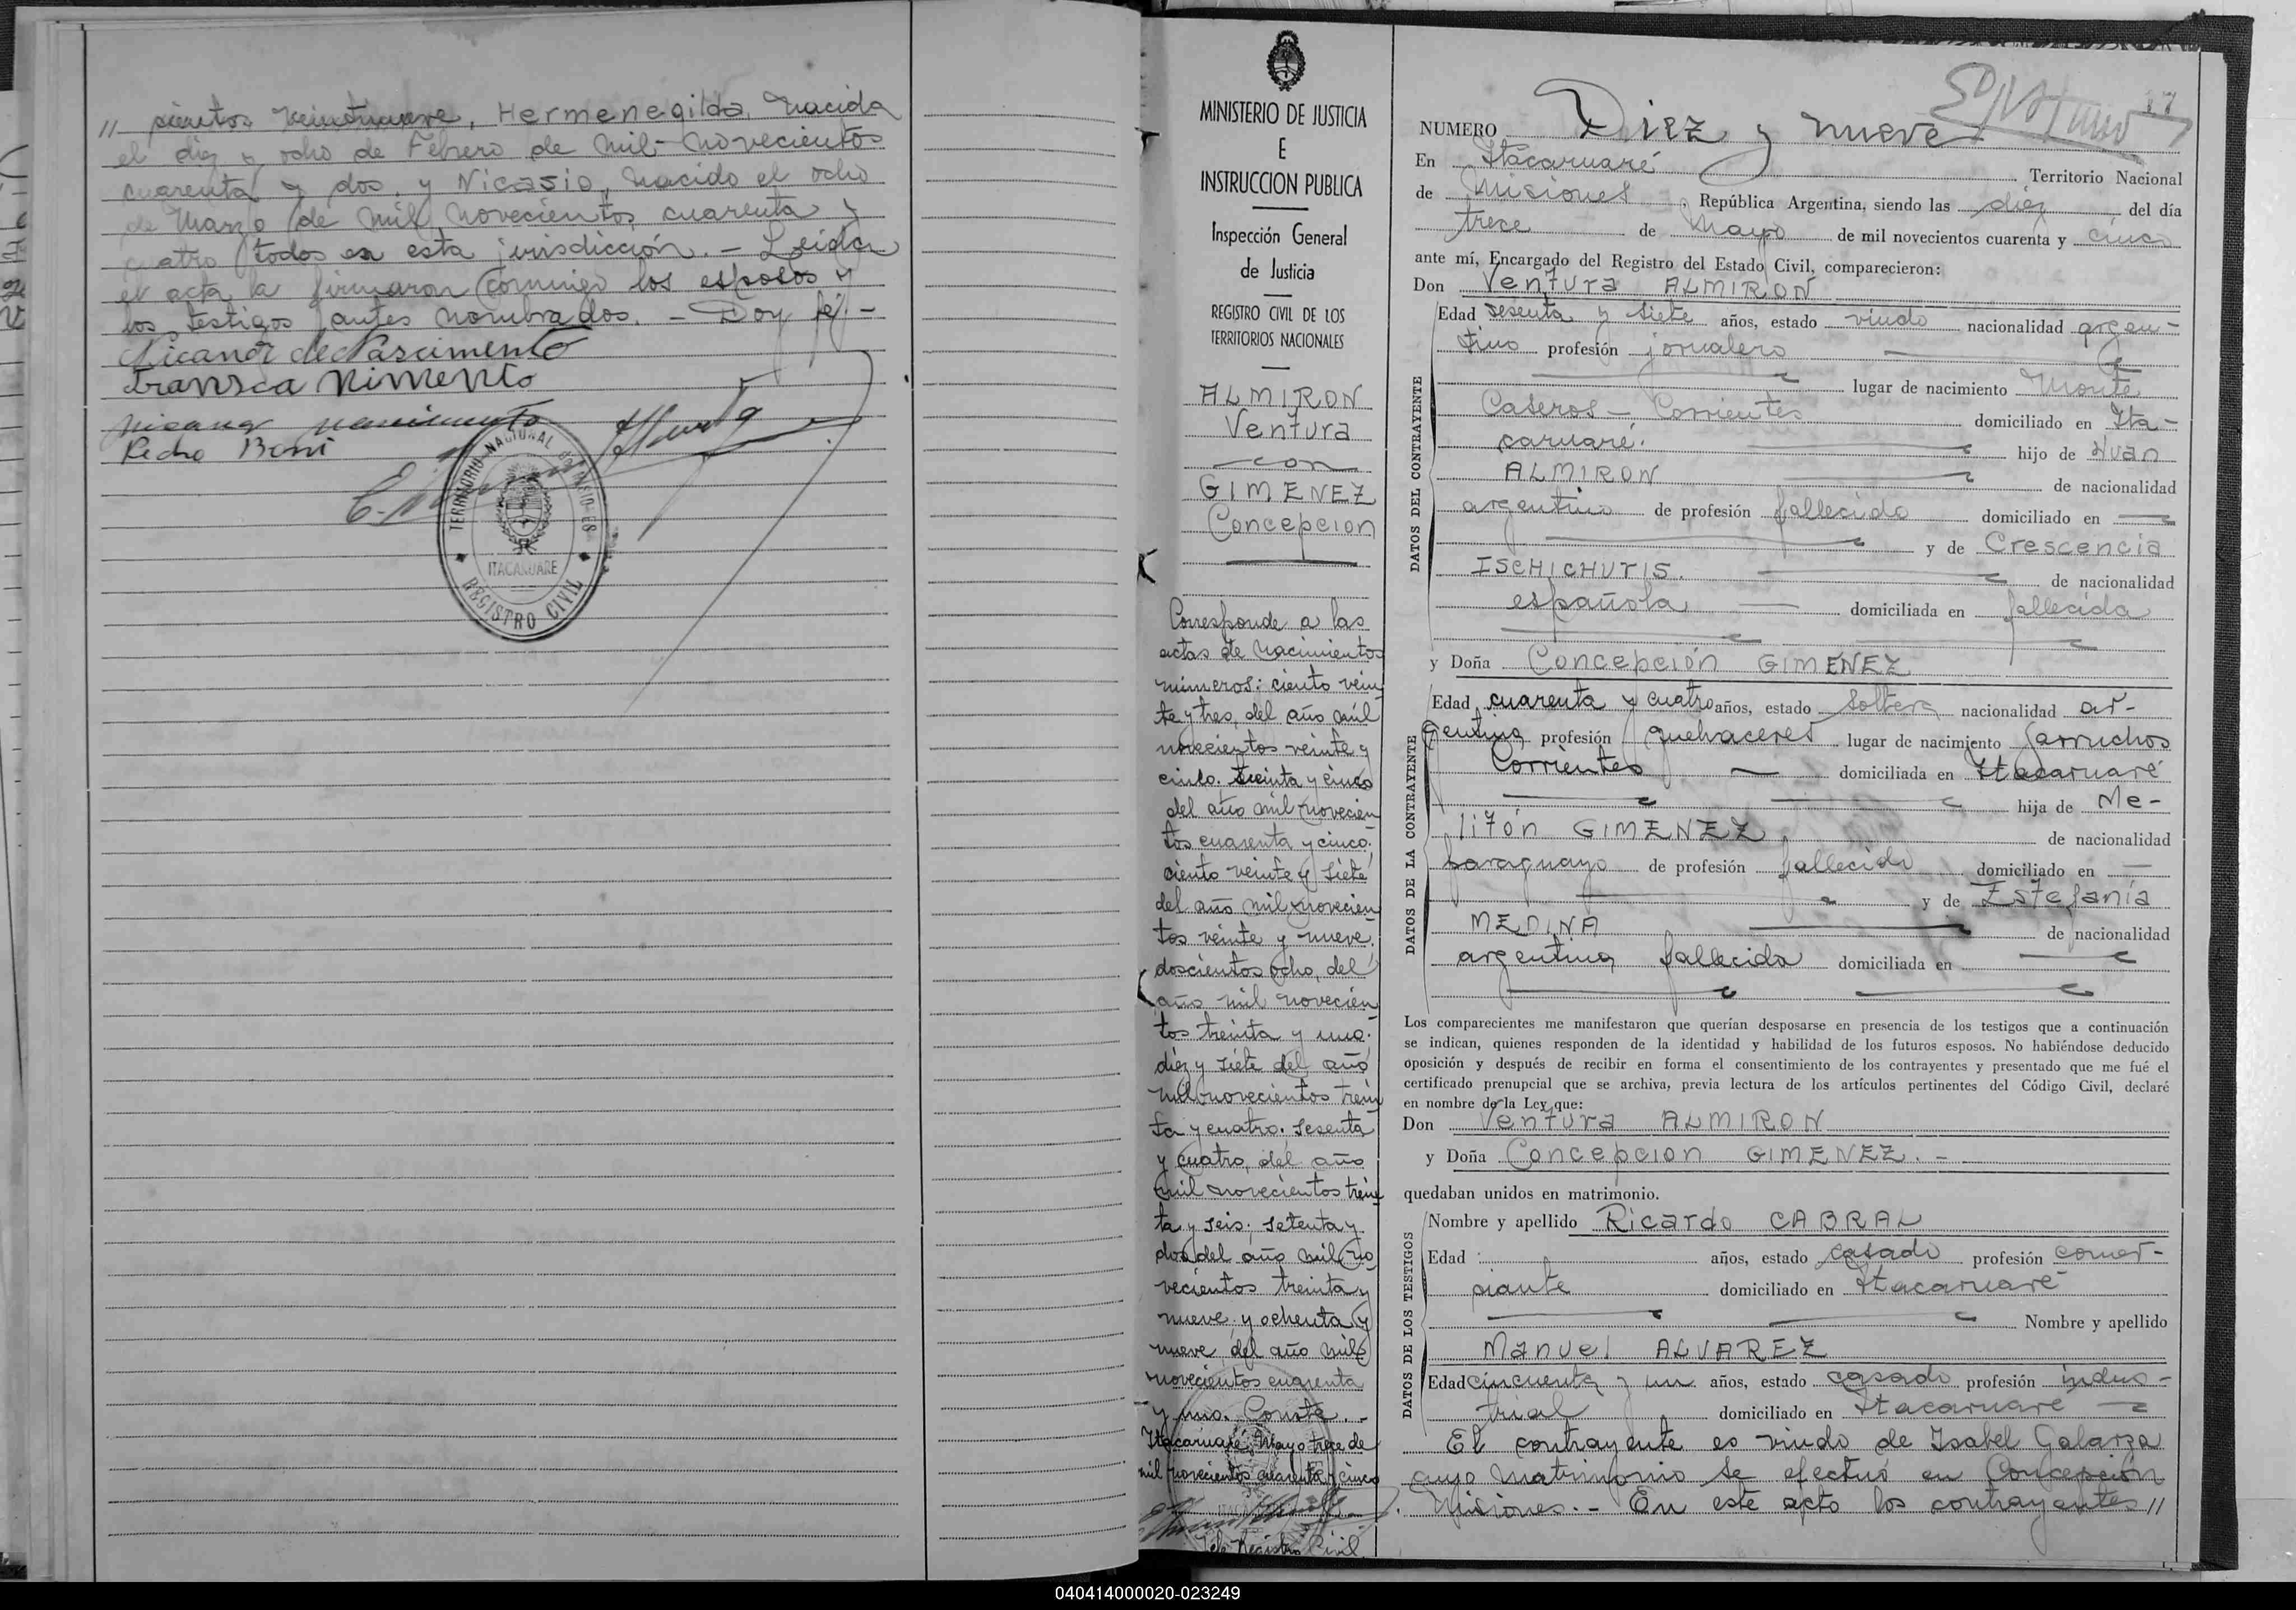 // cientos veintinueve, Hermenegilda, nacida
el diez y ocho de Febrero de mil novecientos
cuarenta y dos, y Nicasio, nacido el ocho
de Marzo de mil novecientos cuarenta y
cuatro todos en esta jurisdicción. – Leida
el acta la firmaron conmigo los esposos y
los testigos antes nombrados. – Doy fé. –
Nicanor de Nascimento
Fransca Nimento
nicanor nacimento
Pedro Boni
TERRITORIO NACIONAL DE MISIONES
ITACARUARE
REGISTRO CIVIL
MINISTERIO DE JUSTICIA
E
INSTRUCCION PUBLICA
Inspección General
de Justicia
REGISTRO CIVIL DE LOS
TERRITORIOS NACIONALES
ALMIRON
Ventura
con
GIMENEZ
Concepcion
Corresponde a las
actas de nacimientos
números: ciento vein
te y tres, del año mil
novecientos veinte y
cinco. treinta y cinco
del año mil novecien
tos cuarenta y cinco;
ciento veinte y siete
del año mil novecien
tos veinte y nueve.
doscientos ocho, del
año mil novecien
tos treinta y uno.
diez y siete del año
mil novecientos trein
ta y cuatro. sesenta
y cuatro, del año
mil novecientos trein
ta y seis; setenta y
dos del año mil no
vecientos treinta y
nueve, y ochenta y
nueve del año mil
novecientos cuarenta
y uno. Conste. –
Itacaruaré, Mayo trece de
mil novecientos cuarenta y cinco
Jefe Registro Civil
NUMERO Diez y nueve
En Itacaruaré Territorio Nacional
de Misiones, República Argentina, siendo las diez del día
trece de Mayo de mil novecientos cuarenta y cinco
ante mí, Encargado del Registro del Estado Civil, comparecieron:
Don Ventura ALMIRON
DATOS DEL CONTRAYENTE
Edad sesenta y siete años, estado viudo nacionalidad argen-
tino profesión jornalero
lugar de nacimiento Monte
Caseros – Corrientes domiciliado en Ita-
caruaré. hijo de Juan
ALMIRON de nacionalidad
argentino de profesión fallecido domiciliado en —
y de Crescencia
ISCHICHUTIS. de nacionalidad
española domiciliada en fallecida
y Doña Concepción GIMENEZ
DATOS DE LA CONTRAYENTE
Edad cuarenta y cuatro años, estado soltera nacionalidad ar-
gentina profesión quehaceres lugar de nacimiento Garruchos
Corrientes — domiciliada en Itacaruaré
hija de Me-
litón GIMENEZ de nacionalidad
paraguayo de profesión fallecido domiciliado en —
y de Estefanía
MEDINA de nacionalidad
argentina fallecida domiciliada en
Los comparecientes me manifestaron que querían desposarse en presencia de los testigos que a continuación
se indican, quienes responden de la identidad y habilidad de los futuros esposos. No habiéndose deducido
oposición y después de recibir en forma el consentimiento de los contrayentes y presentado que me fué el
certificado prenupcial que se archiva, previa lectura de los artículos pertinentes del Código Civil, declaré
en nombre de la Ley que:
Don Ventura ALMIRON
y Doña Concepcion GIMENEZ. –
quedaban unidos en matrimonio.
DATOS DE LOS TESTIGOS
Nombre y apellido Ricardo CABRAL
Edad años, estado casado profesión comer-
ciante domiciliado en Itacaruaré
Nombre y apellido
Manuel ALVAREZ
Edad cincuenta y un años, estado casado profesión indus-
trial domiciliado en Itacaruaré
El contrayente es viudo de Isabel Galarza
cuyo matrimonio se efectuó en Concepción
Misiones. – En este acto los contrayentes //
040414000020-023249